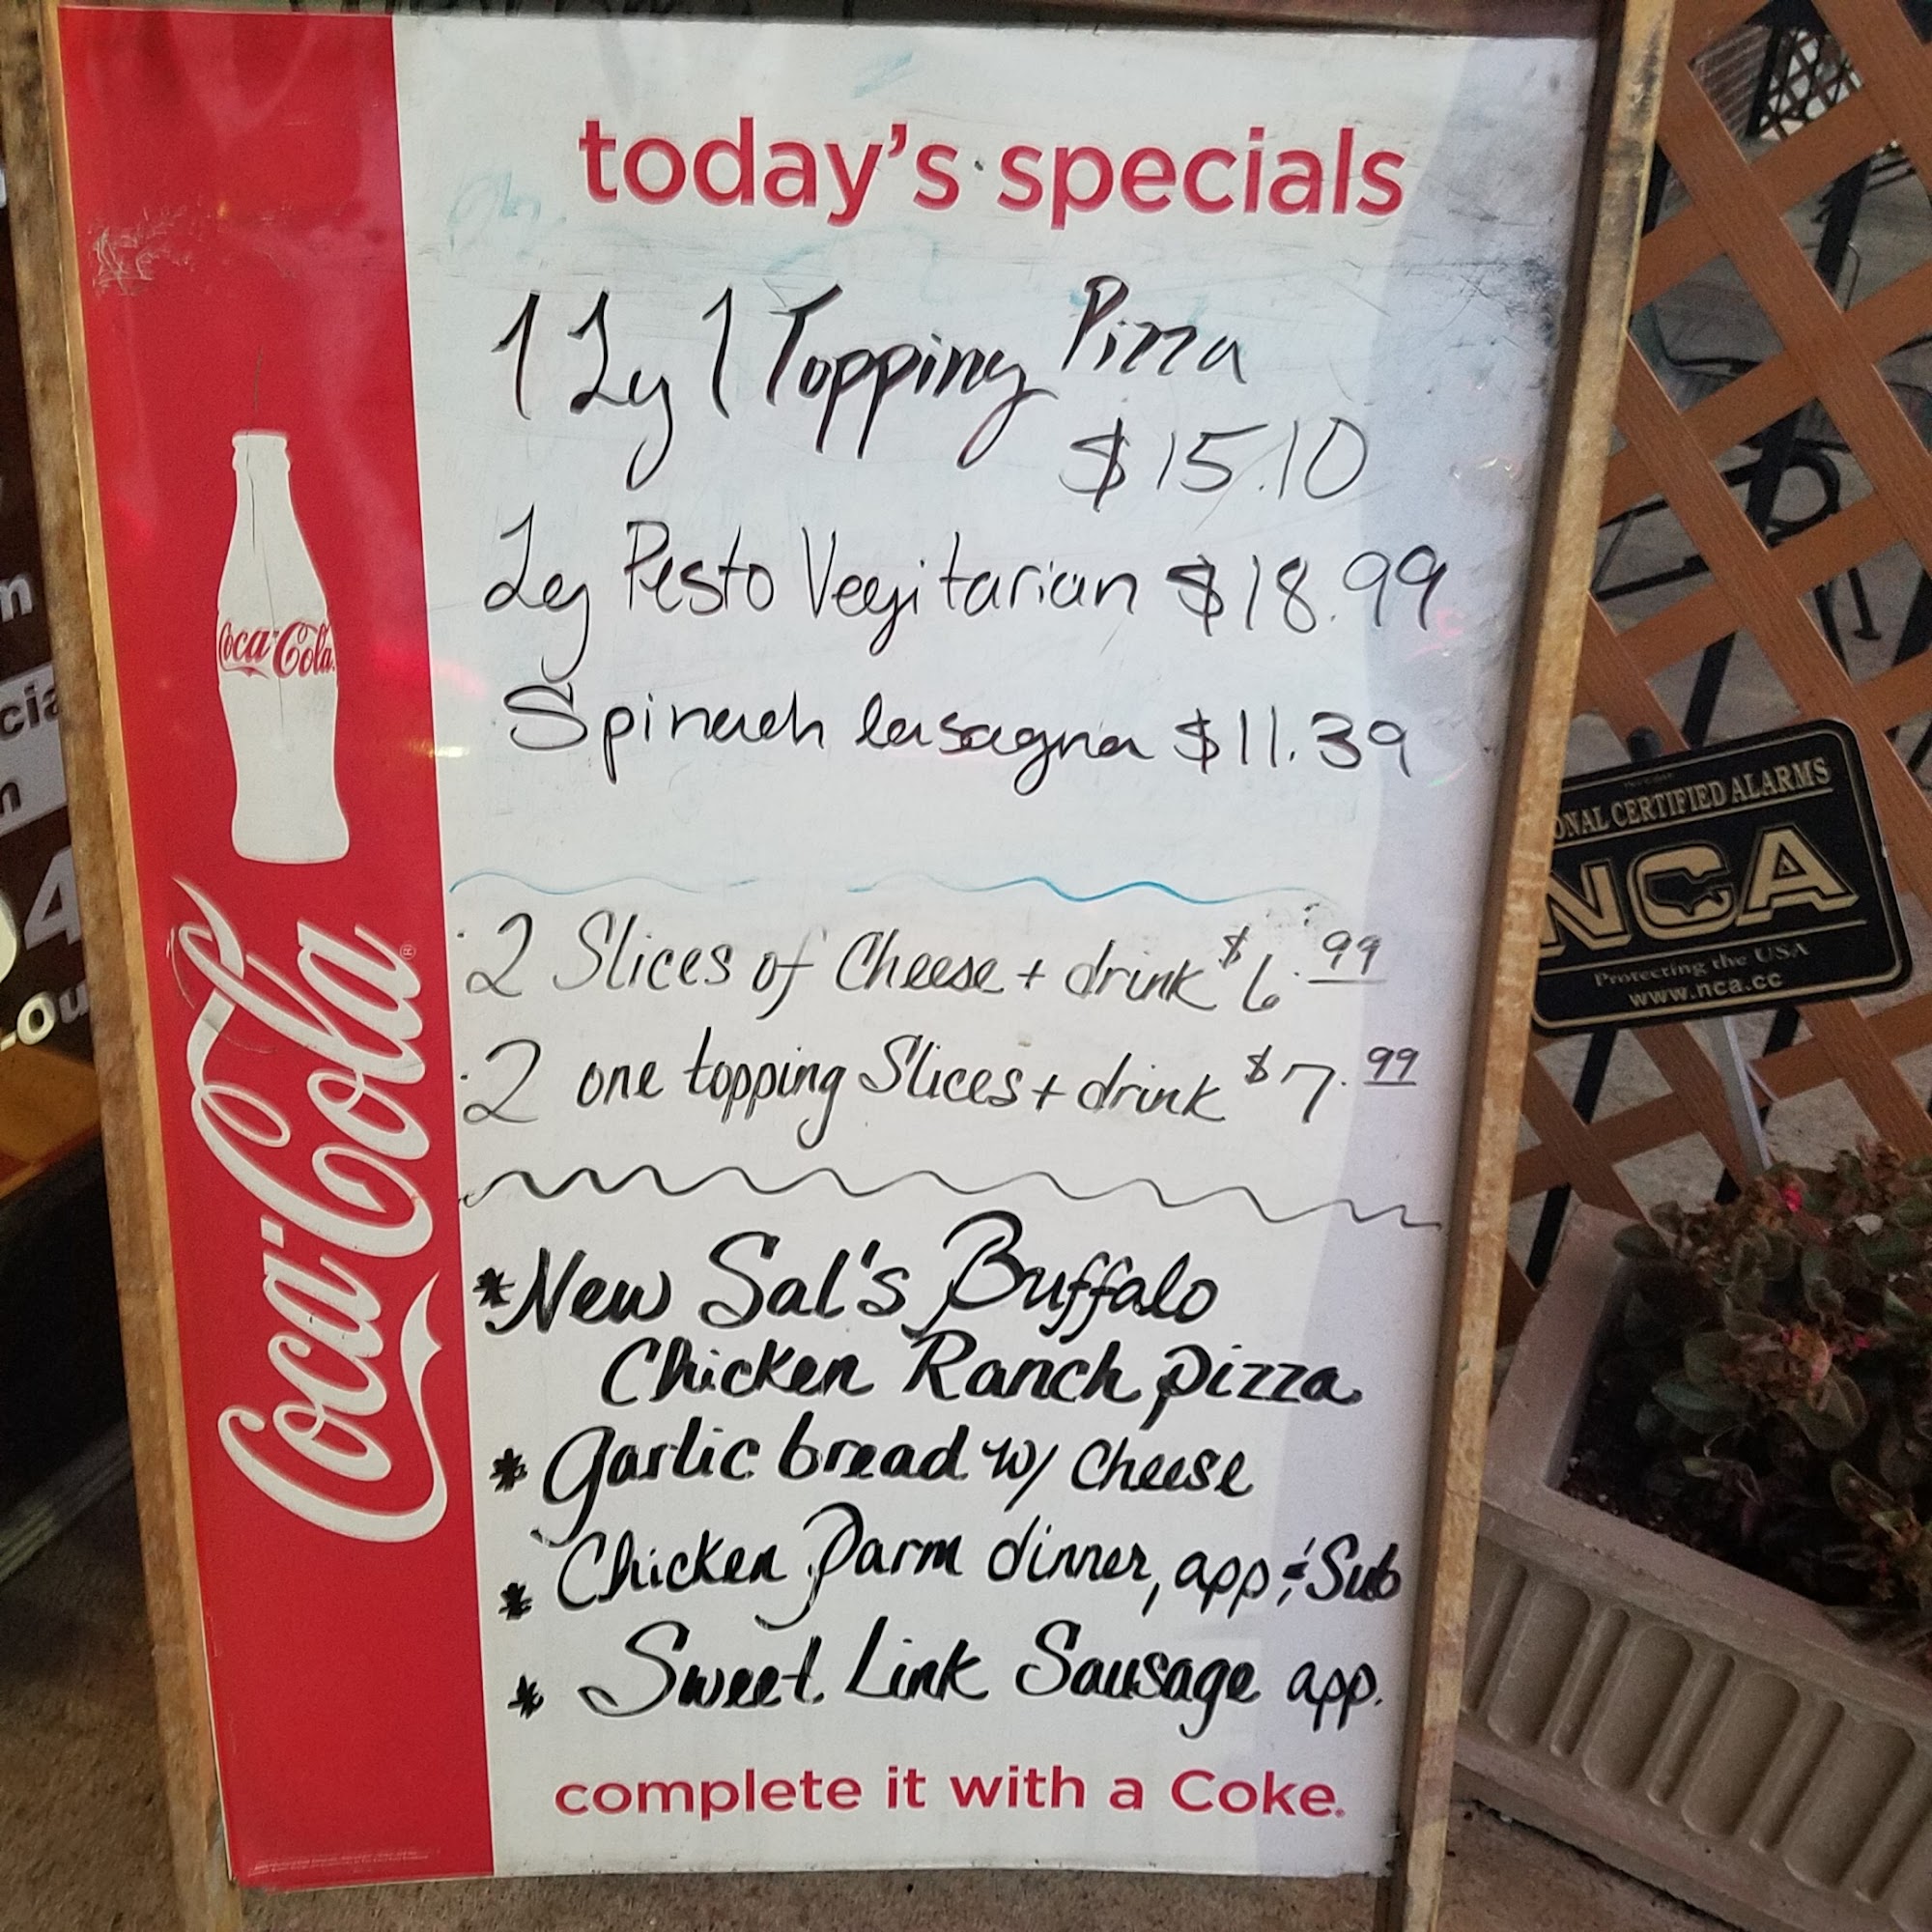 today's specials
1 Lg 1 Topping Pizza
$15.10
Lg Pesto Vegitarian $18.99
Spinach lasagna $11.39
2 Slices of Cheese + drink $6.99
2 one topping Slices + drink $7.99
*New Sal's Buffalo
Chicken Ranch pizza
* Garlic bread w/ Cheese
* Chicken Parm dinner, app & Sub
* Sweet Link Sausage app.
complete it with a Coke.
Coca-Cola
Coca-Cola®
ONAL CERTIFIED ALARMS
NCA
Protecting the USA
www.nca.cc
4